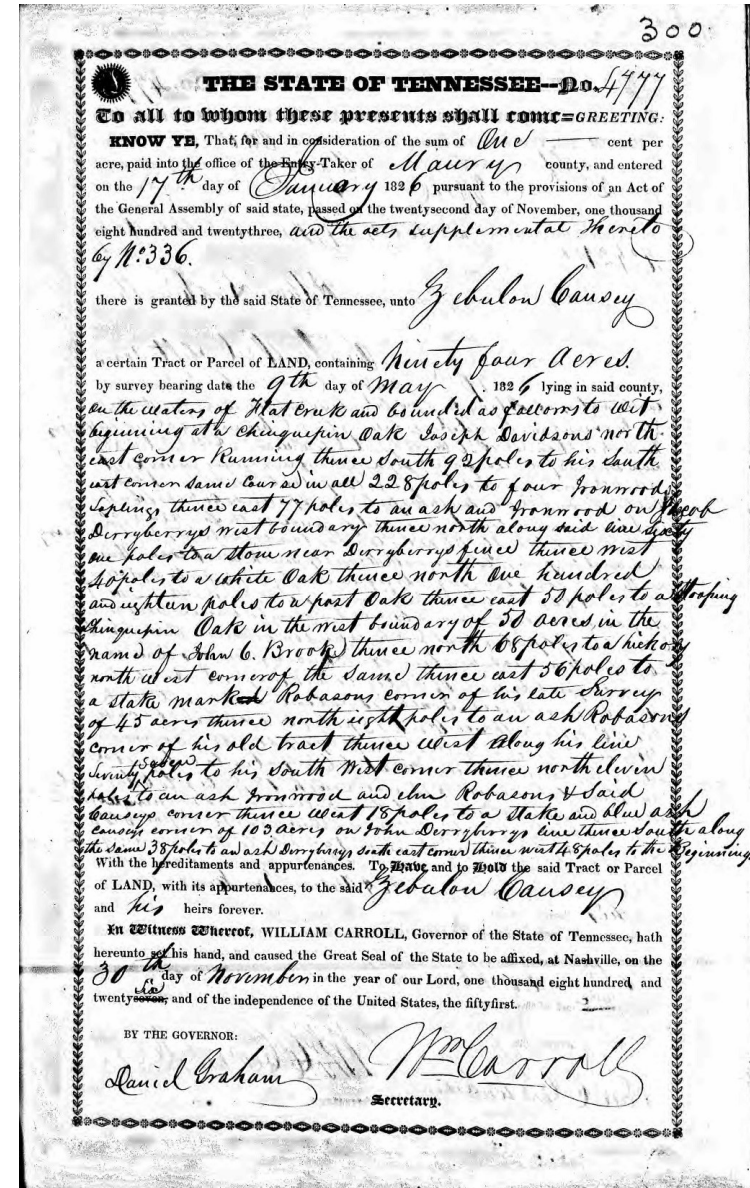 300
THE STATE OF TENNESSEE--No. 4777
To all to whom these presents shall come=GREETING:
KNOW YE, That, for and in consideration of the sum of One — cent per
acre, paid into the office of the Entry-Taker of Maury county, and entered
on the 17th day of January 1826 pursuant to the provisions of an Act of
the General Assembly of said state, passed on the twentysecond day of November, one thousand
eight hundred and twentythree, and the acts supplemental thereto
by No. 336.
there is granted by the said State of Tennessee, unto Zebulon Causey
a certain Tract or Parcel of LAND, containing ninety four acres.
by survey bearing date the 9th day of may 1826 lying in said county,
on the waters of Flat creek and bounded as follows to wit
beginning at a Chinquepin Oak Joseph Davidsons north
east corner Running thence South 92 poles to his South
east corner same course in all 228 poles to four Ironwood
Saplings thence east 77 poles to an ash and Ironwood on Jacob
Derryberrys west boundary thence north along said line Sixty
one poles to a stone near Derryberrys fence thence west
40 poles to a white Oak thence north One hundred
and eighteen poles to a post Oak thence east 50 poles to a Stooping
Chinquepin Oak in the west boundary of 50 acres in the
name of John C. Brook thence north 68 poles to a hickory
north west corner of the Same thence east 56 poles to
a stake marked Robasons corner of his late Survey
of 45 acres thence north eight poles to an ash Robasons
corner of his old tract thence west along his line
Seventy Seven poles to his South West corner thence north eleven
poles to an ash Ironwood and elm Robasons & Said
Causeys corner thence west 18 poles to a stake and blue ash
Causeys corner of 103 acres on John Derryberrys line thence South along
the same 38 poles to an ash Derryberrys south east corner thence west 48 poles to the Beginning
With the hereditaments and appurtenances. To Have and to Hold the said Tract or Parcel
of LAND, with its appurtenances, to the said Zebulon Causey
and his heirs forever.
In Witness Whereof, WILLIAM CARROLL, Governor of the State of Tennessee, hath
hereunto set his hand, and caused the Great Seal of the State to be affixed, at Nashville, on the
30th day of November in the year of our Lord, one thousand eight hundred and
twentyseven, Six and of the independence of the United States, the fiftyfirst.
BY THE GOVERNOR:
Wm Carroll
Daniel Graham
Secretary.